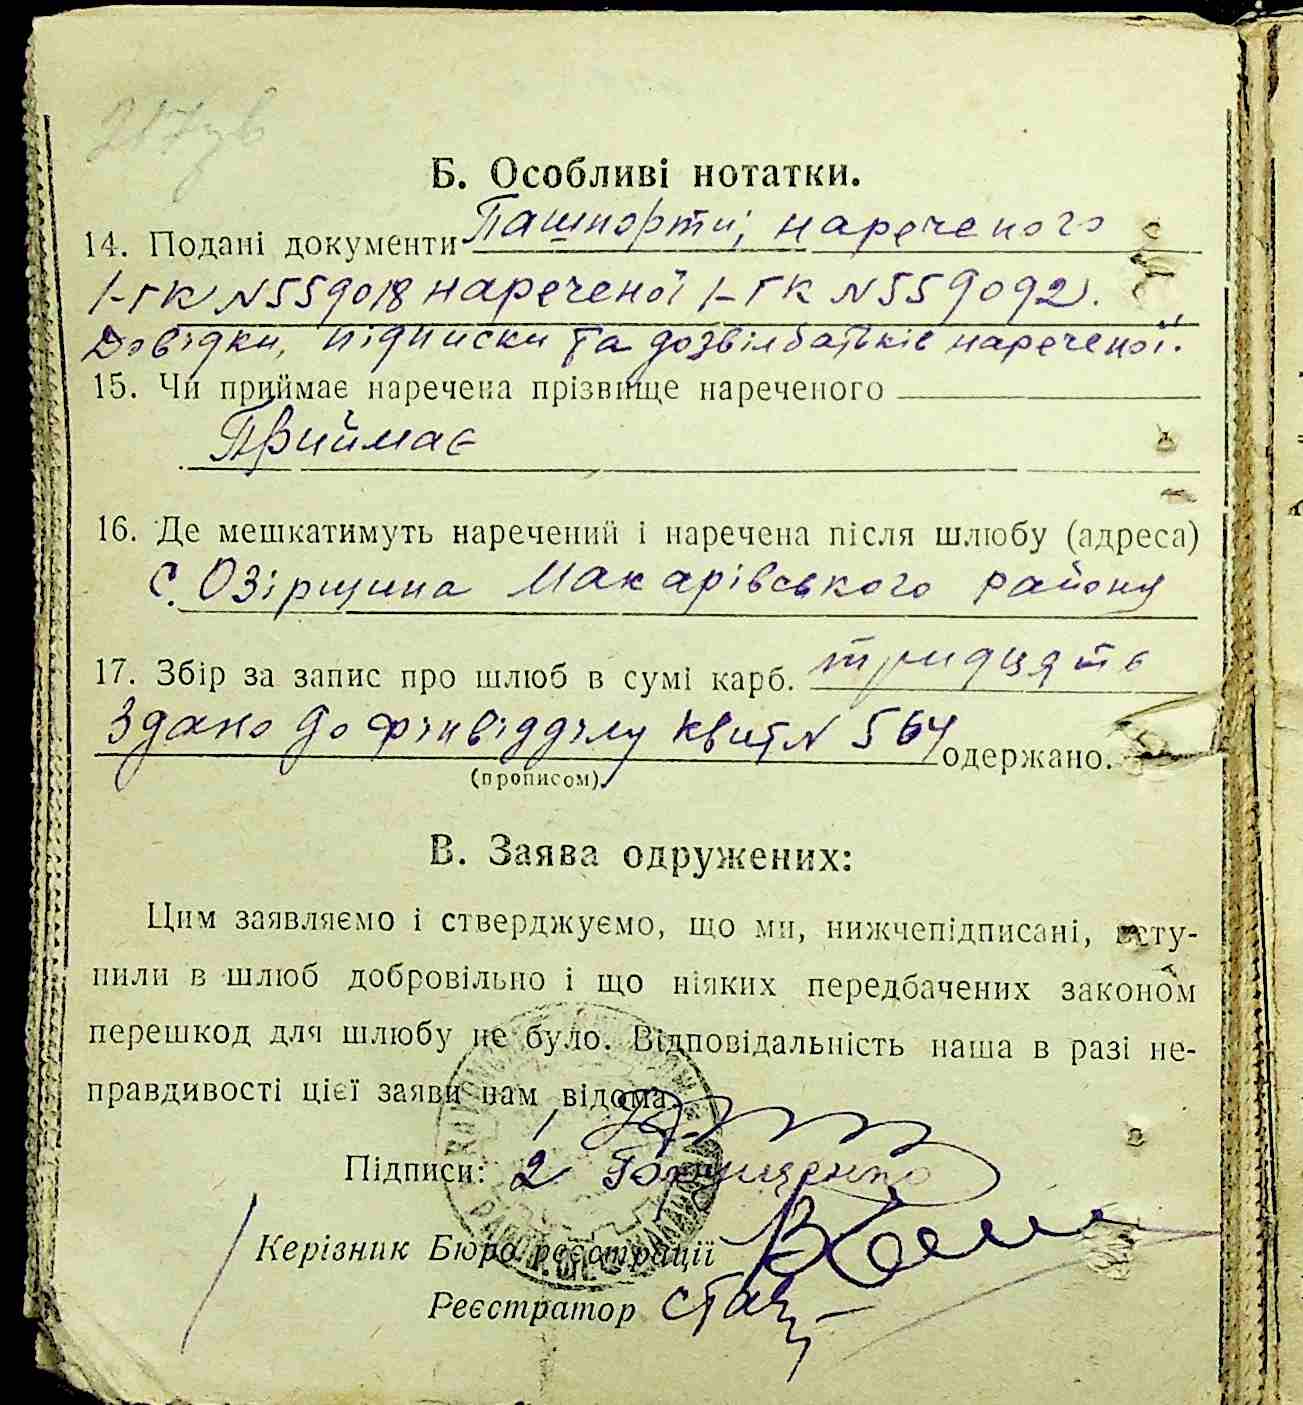 Б. Особливі нотатки.
14. Подані документи Пашпорти; нареченого
1-ГК N559018 нареченої 1-ГК N559092.
Довідки, підписки та дозвіл батьків нареченої.
15. Чи приймає наречена прізвище нареченого
Приймає
16. Де мешкатимуть наречений і наречена після шлюбу (адреса)
с. Озірщина Макарівського району
17. Збір за запис про шлюб в сумі карб. тридцять
Здано до фінвідділу квит N 564 одержано.
(прописом)
В. Заява одружених:
Цим заявляємо і стверджуємо, що ми, нижчепідписані, всту-
пили в шлюб добровільно і що ніяких передбачених законом
перешкод для шлюбу не було. Відповідальність наша в разі не-
правдивості цієї заяви нам відома.
1
Підписи: 2
Керізник Бюро реєстрації
Реєстратор